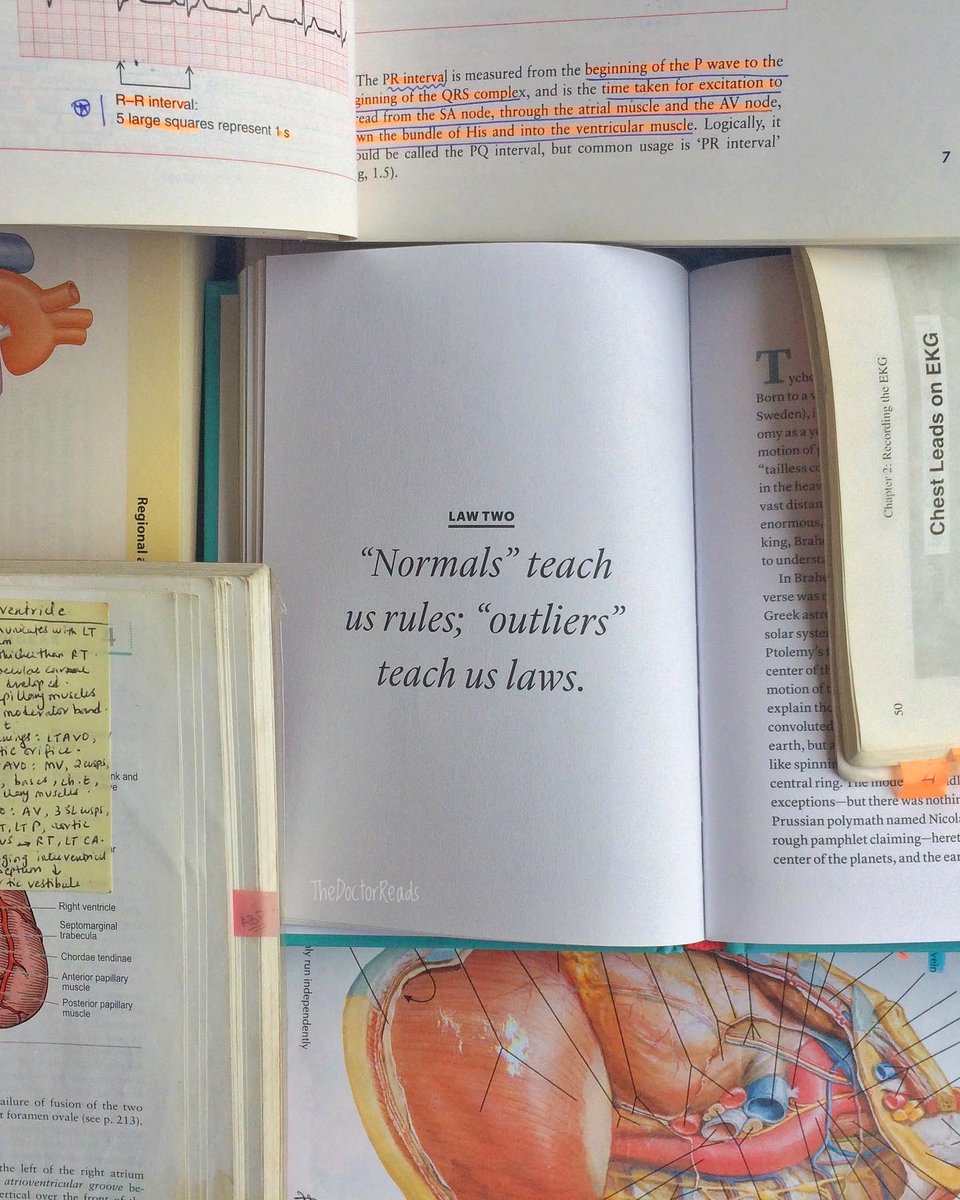 R–R interval:
5 large squares represent 1 s
The PR interval is measured from the beginning of the P wave to the
ginning of the QRS complex, and is the time taken for excitation to
ead from the SA node, through the atrial muscle and the AV node,
wn the bundle of His and into the ventricular muscle. Logically, it
ould be called the PQ interval, but common usage is ‘PR interval’
g, 1.5).
7
Regional a
LAW TWO
“Normals” teach
us rules; “outliers”
teach us laws.
TheDoctorReads
Tych
Born to a w
Sweden), i
omy as a y
motion of
“tailless co
in the heav
vast distan
enormous,
king, Brahe
to understa
In Brahe
verse was
Greek astr
solar syste
Ptolemy’s
center of th
motion of t
explain the
convoluted
earth, but a
like spinni
central ring. The mode
exceptions—but there was nothin
Prussian polymath named Nicola
rough pamphlet claiming—heret
center of the planets, and the ear
Chapter 2: Recording the EKG
Chest Leads on EKG
50
ventricle
unicates with LT
thicker than RT
developed.
pillary muscles
moderator band.
ings: LTAVO,
tic orifice.
AVO: MV, 2 cusps,
, bases, ch.t,
llary muscles
O: AV, 3 SL cusps,
T, LTP, aortic
us → RT, LT CA.
ging interventricul
septum ↓
tic vestibule
nk and
ve
Right ventricle
Septomarginal
trabecula
Chordae tendinae
Anterior papillary
muscle
Posterior papillary
muscle
ailure of fusion of the two
t foramen ovale (see p. 213).
the left of the right atrium
atrioventricular groove be-
ertical over the front of the
ly run independently
vein